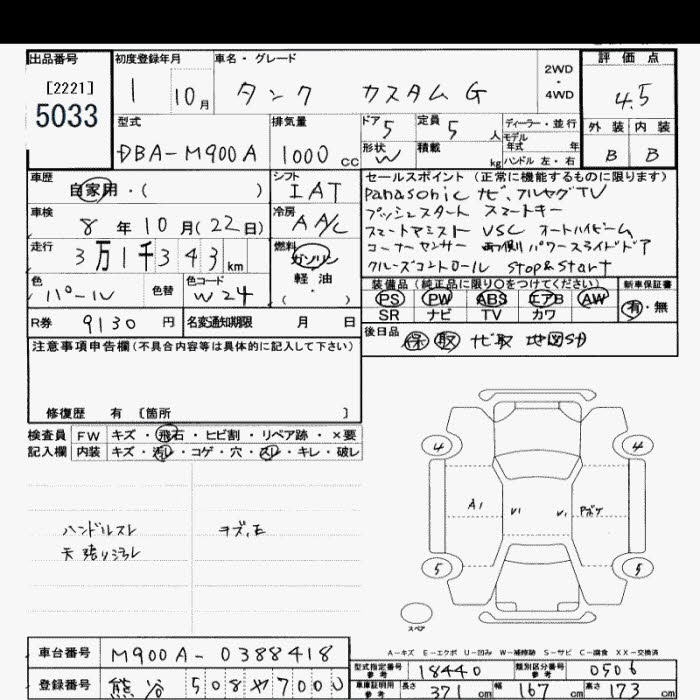 出品番号 初度登録年月 車名・グレード 2WD・4WD 評価点
[2221]
5033
1 10月 タンク カスタムG 4.5
型式 排気量 ドア 5 定員 5 人 ディーラー・並行 外装 内装
DBA-M900A 1000cc 形状 W 積載 kg モデル年式 年式 ハンドル 左・右 B B
車歴 自家用・( ) シフト IAT セールスポイント (正常に機能するものに限ります)
Panasonic ナビ、フルセグTV
車検 8年10月(22日) 冷房 AA/C プッシュスタート スマートキー
スマートアシスト VSC オートハイビーム
走行 3万1千343km 燃料 ガソリン 軽油 ・( ) コーナーセンサー 両側パワースライドドア
クルーズコントロール stop&start
色 パール 色替 色コード W24 装備品 (純正品に限り○をつけてください) 新車保証書
PS PW ABS エアB AW 有・無
SR ナビ TV カワ
R券 9130円 名変通知期限 月 日 後日品 保 取 ナビ取 地図SD
注意事項申告欄(不具合内容等は具体的に記入して下さい)
修復歴 有 〔箇所 〕
検査員 FW キズ・飛石・ヒビ割・リペア跡・×要
記入欄 内装 キズ・汚レ・コゲ・穴・スレ・キレ・破レ
ハンドルスレ
天張りヨゴレ
4 4
A1 V1 V1 Pボケ
5 5
スペア
A-キズ E-エクボ U-凹み W-補修跡 S-サビ C-腐食 XX-交換済
車台番号 M900A-0388418 型式指定番号 参考 18440 類別区分番号 参考 0506
登録番号 熊谷 508 や 7000 車庫証明用 参考 長さ 371cm 幅 167cm 高さ 173cm